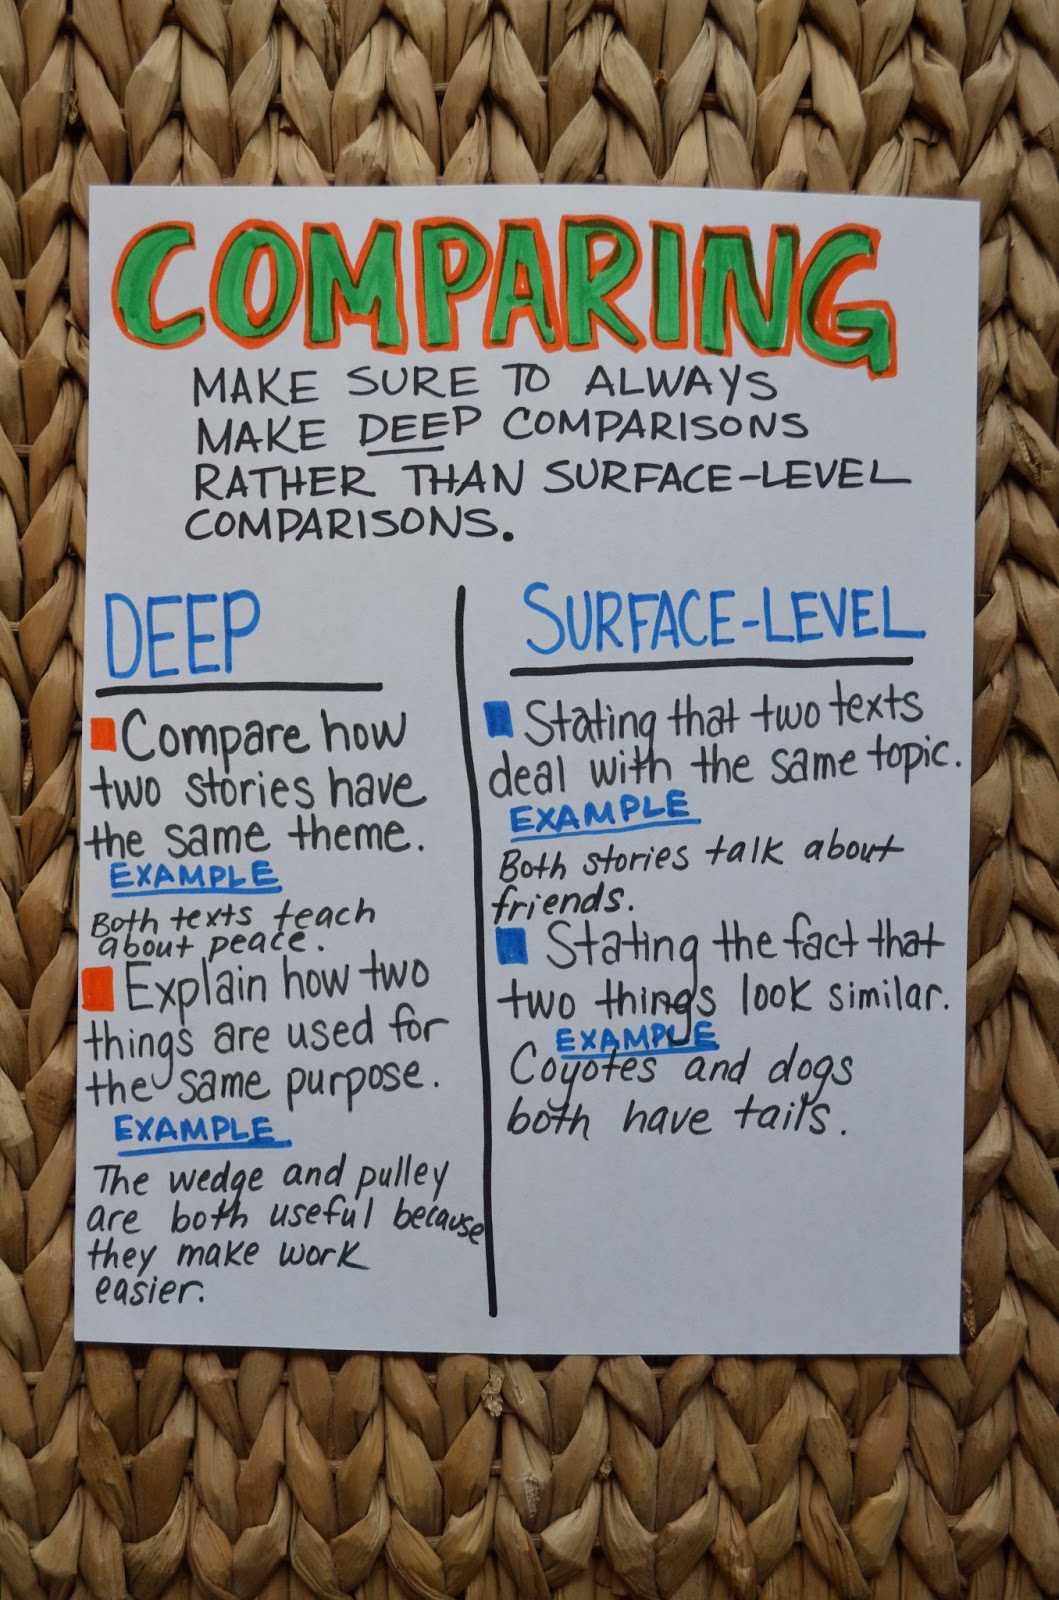 COMPARING
MAKE SURE TO ALWAYS
MAKE DEEP COMPARISONS
RATHER THAN SURFACE-LEVEL
COMPARISONS.
DEEP
Compare how
two stories have
the same theme.
EXAMPLE
Both texts teach
about peace.
Explain how two
things are used for
the same purpose.
EXAMPLE
The wedge and pulley
are both useful because
they make work
easier.
SURFACE-LEVEL
Stating that two texts
deal with the same topic.
EXAMPLE
Both stories talk about
friends.
Stating the fact that
two things look similar.
EXAMPLE
Coyotes and dogs
both have tails.